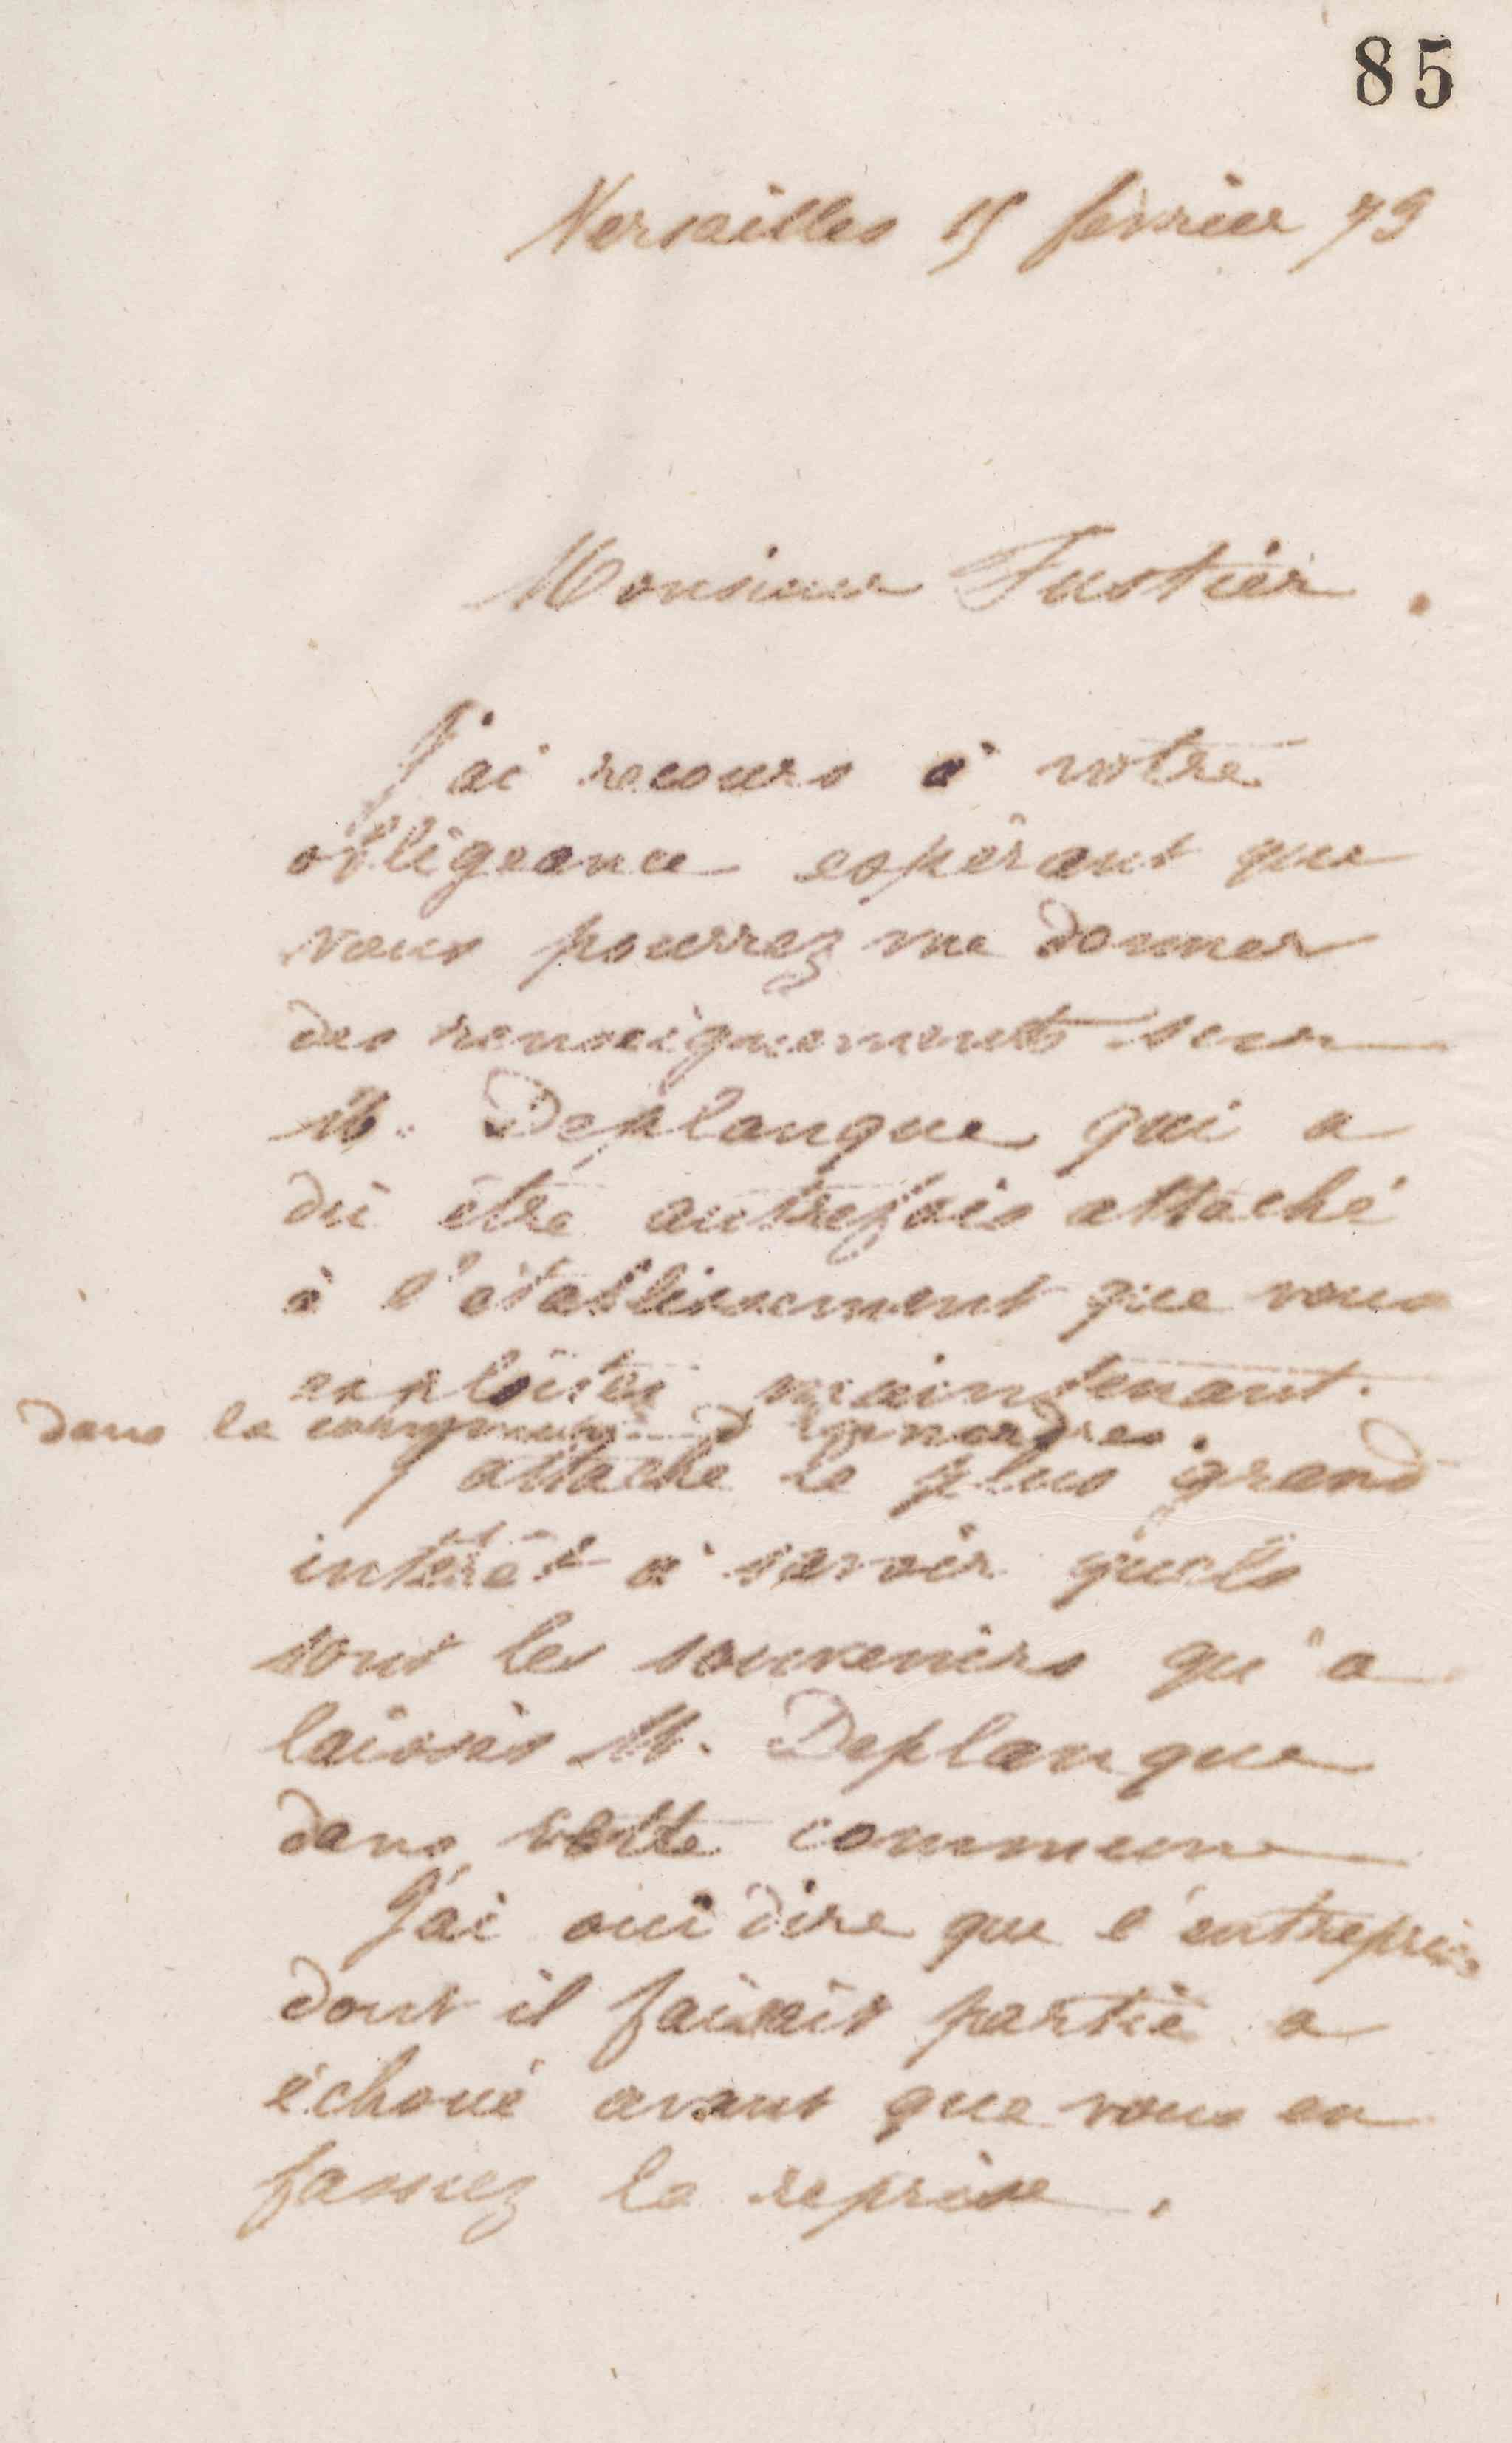 85
Versailles 15 février 79
Monsieur Fustier.
J'ai recours à votre
obligeance espérant que
vous pourrez me donner
des renseignements sur
M. Deplanque qui a
dû être autrefois attaché
à l'établissement que vous
exploitez maintenant.
dans la commune d'
J'attache le plus grand
intérêt à savoir quels
sont les souvenirs qu'a
laissés M. Deplanque
dans cette commune
J'ai ouï dire que l'entreprise
dont il faisait partie a
échoué avant que vous en
fassiez la reprise.